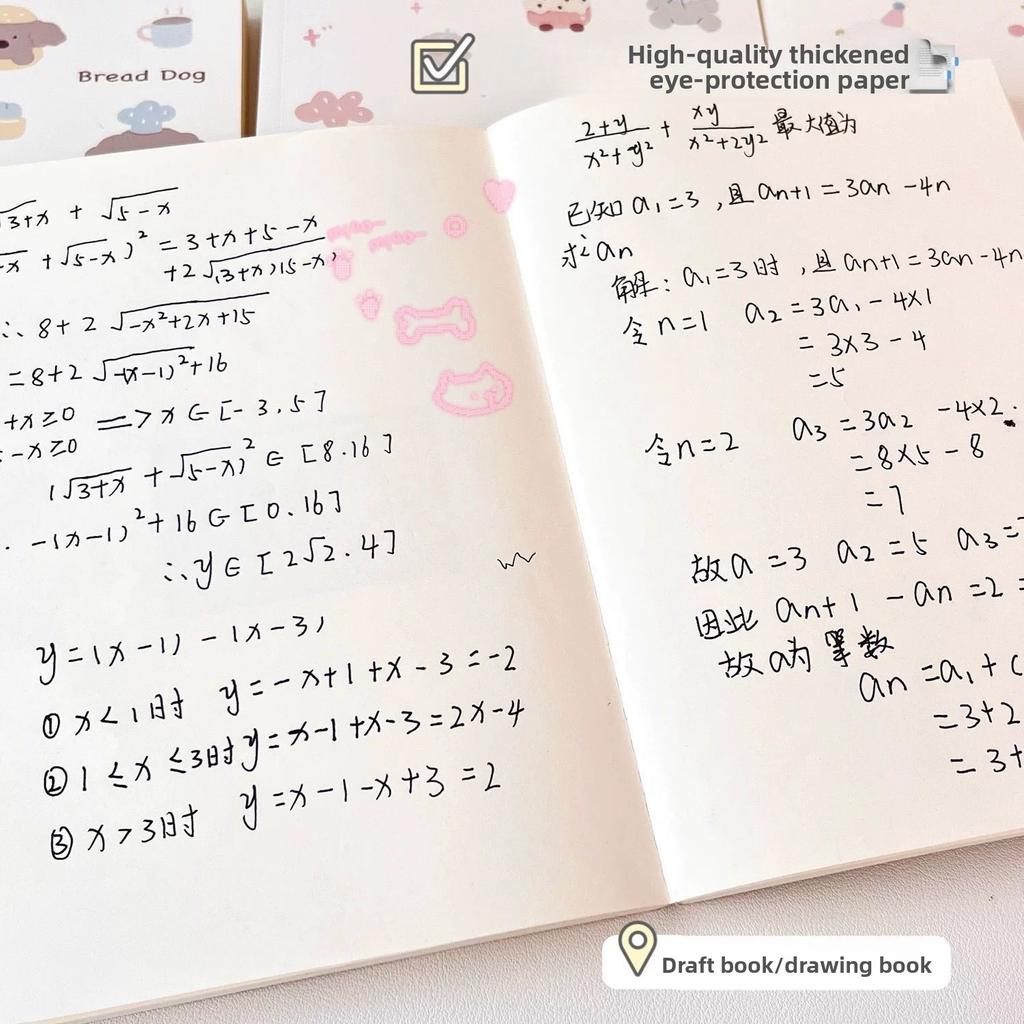 Bread Dog
High-quality thickened
eye-protection paper
√3+x + √5-x
-x + √5-x)² = 3+x+5-x
+2√(3+x)(5-x)
∴ 8+2√-x²+2x+15
=8+2√-(x-1)²+16
+x≥0 => x∈[-3.5]
-x≥0
(√3+x + √5-x)² ∈ [8.16]
-(x-1)²+16∈[0.16]
∴y∈[2√2.4]
y=(x-1)-(x-3)
① x<1时 y=-x+1+x-3=-2
② 1≤x≤3时y=x-1+x-3=2x-4
③ x>3时 y=x-1-x+3=2
2+y/x²+y² + xy/x²+2y² 最大值为
已知a₁=3,且an+1=3an-4n
求an
解:a₁=3时,且an+1=3an-4n
令n=1 a₂=3a₁-4×1
=3×3-4
=5
令n=2 a₃=3a₂-4×2
=8×5-8
=7
故a=3 a₂=5 a₃=
因此 an+1-an=2=
故a为等数
an=a₁+(
=3+2
=3+
Draft book/drawing book